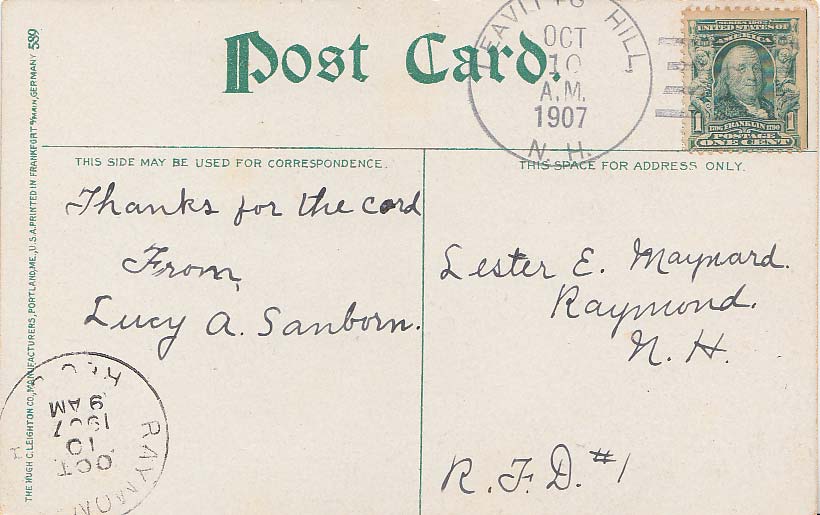 Post Card.
LEAVITTS HILL,
OCT
10
A.M.
1907
N. H.
SERIES 1902
UNITED STATES OF
AMERICA
1706 FRANKLIN 1790
1 POSTAGE 1
ONE CENT
THIS SIDE MAY BE USED FOR CORRESPONDENCE.
Thanks for the card
From,
Lucy A. Sanborn.
THIS SPACE FOR ADDRESS ONLY.
Lester E. Maynard.
Raymond.
N. H.
R. F. D. #1
THE HUGH C. LEIGHTON CO., MANUFACTURERS, PORTLAND, ME., U.S.A. PRINTED IN FRANKFORT o/MAIN, GERMANY 589
RAYMON
OCT
10
1907
9 AM
REC
H